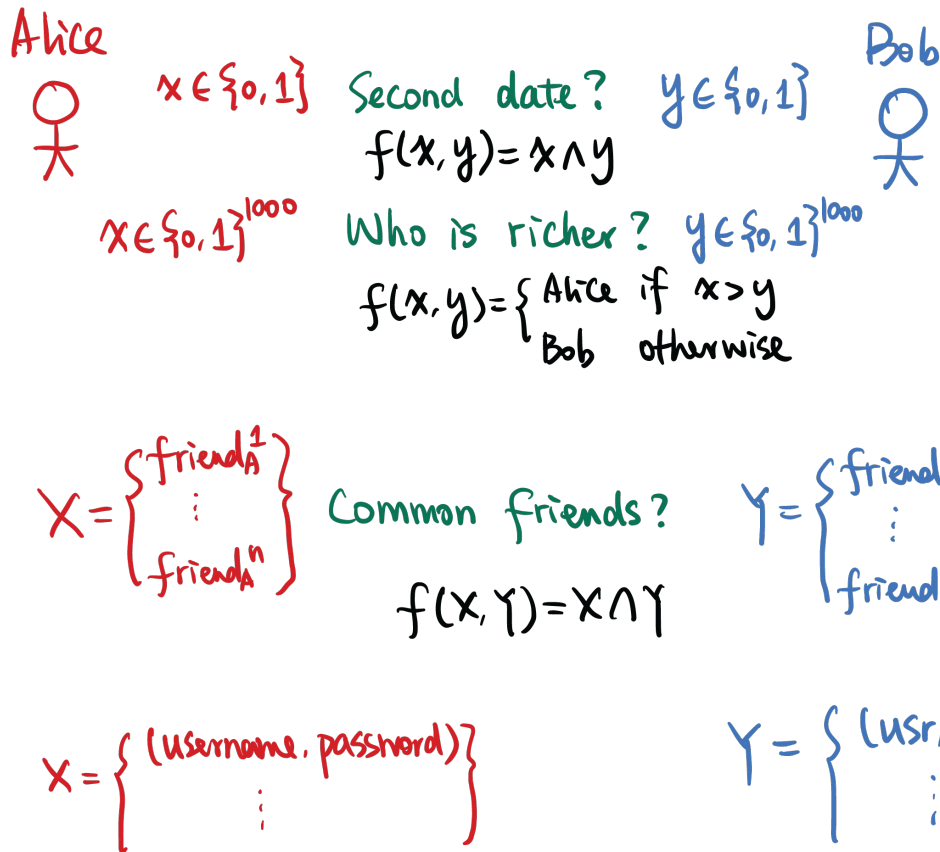 Alice Bob
x ∈ {0,1} Second date? y ∈ {0,1}
f(x,y) = x ∧ y
x ∈ {0,1}^1000 Who is richer? y ∈ {0,1}^1000
f(x,y) = { Alice if x > y
Bob otherwise
X = { friend_A^1 ⋮ friend_A^n } Common friends? Y = { friend ⋮ friend
f(X,Y) = X ∩ Y
X = { (username, password) ⋮ } Y = { (usr, ⋮